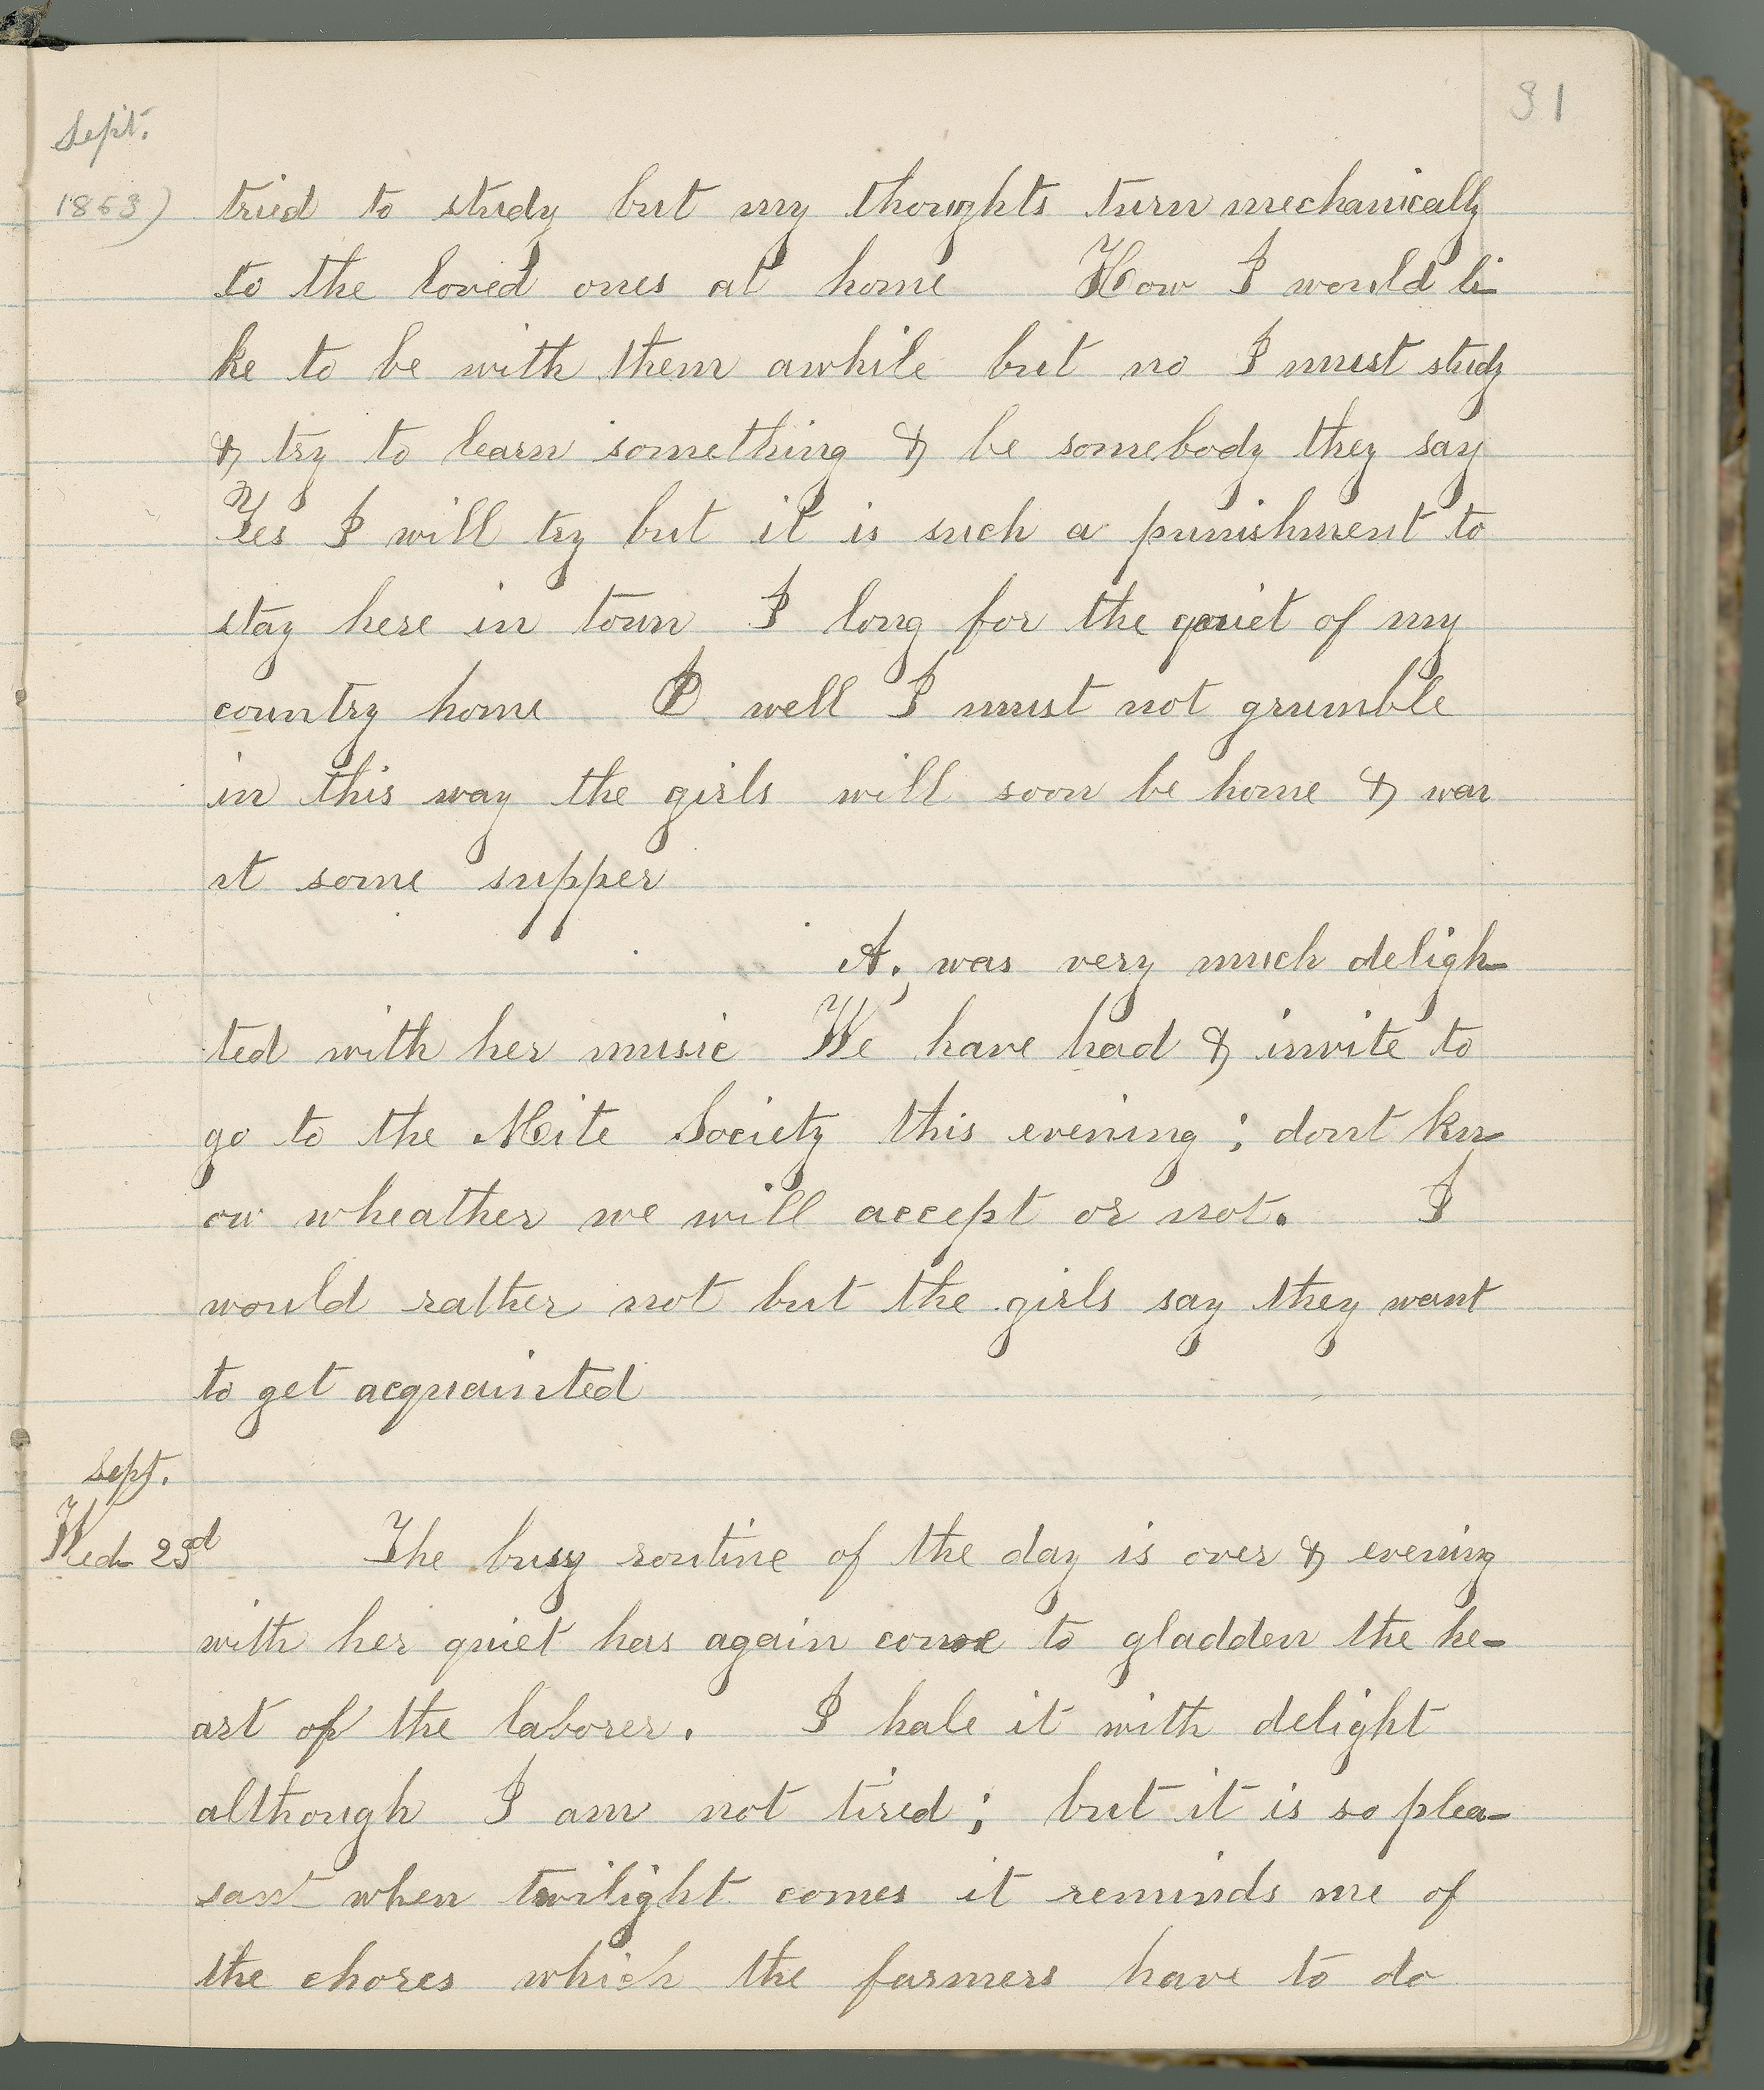 31
Sept.
1863) tried to study but my thoughts turn mechanically
to the loved ones at home How I would li-
ke to be with them awhile but no I must study
& try to learn something & be somebody they say
Yes I will try but it is such a punishment to
stay here in town I long for the quiet of my
country home O well I must not grumble
in this way the girls will soon be home & wan
nt some supper
A. was very much deligh-
ted with her music We have had & invite to
go to the Meite Society this evening ; dont kn-
ow wheather we will accept or not. I
would rather not but the girls say they want
to get acquainted
Sept.
Wed 23d The busy routine of the day is over & evening
with her quiet has again come to gladden the he-
art of the laborer. I hale it with delight
although I am not tired ; but it is so plea-
sant when twilight comes it reminds me of
the chores which the farmers have to do